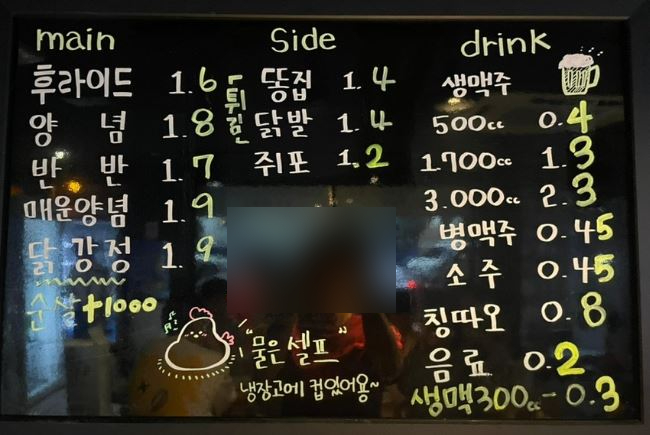 main
후라이드 1.6
양 념 1.8
반 반 1.7
매운양념 1.9
닭강정 1.9
순살 +1000
Side
튀김
똥집 1.4
닭발 1.4
쥐포 1.2
"물은 셀프"
냉장고에 컵있어용~
drink
생맥주
500cc 0.4
1.700cc 1.3
3.000cc 2.3
병맥주 0.45
소주 0.45
칭따오 0.8
음료 0.2
생맥300cc - 0.3